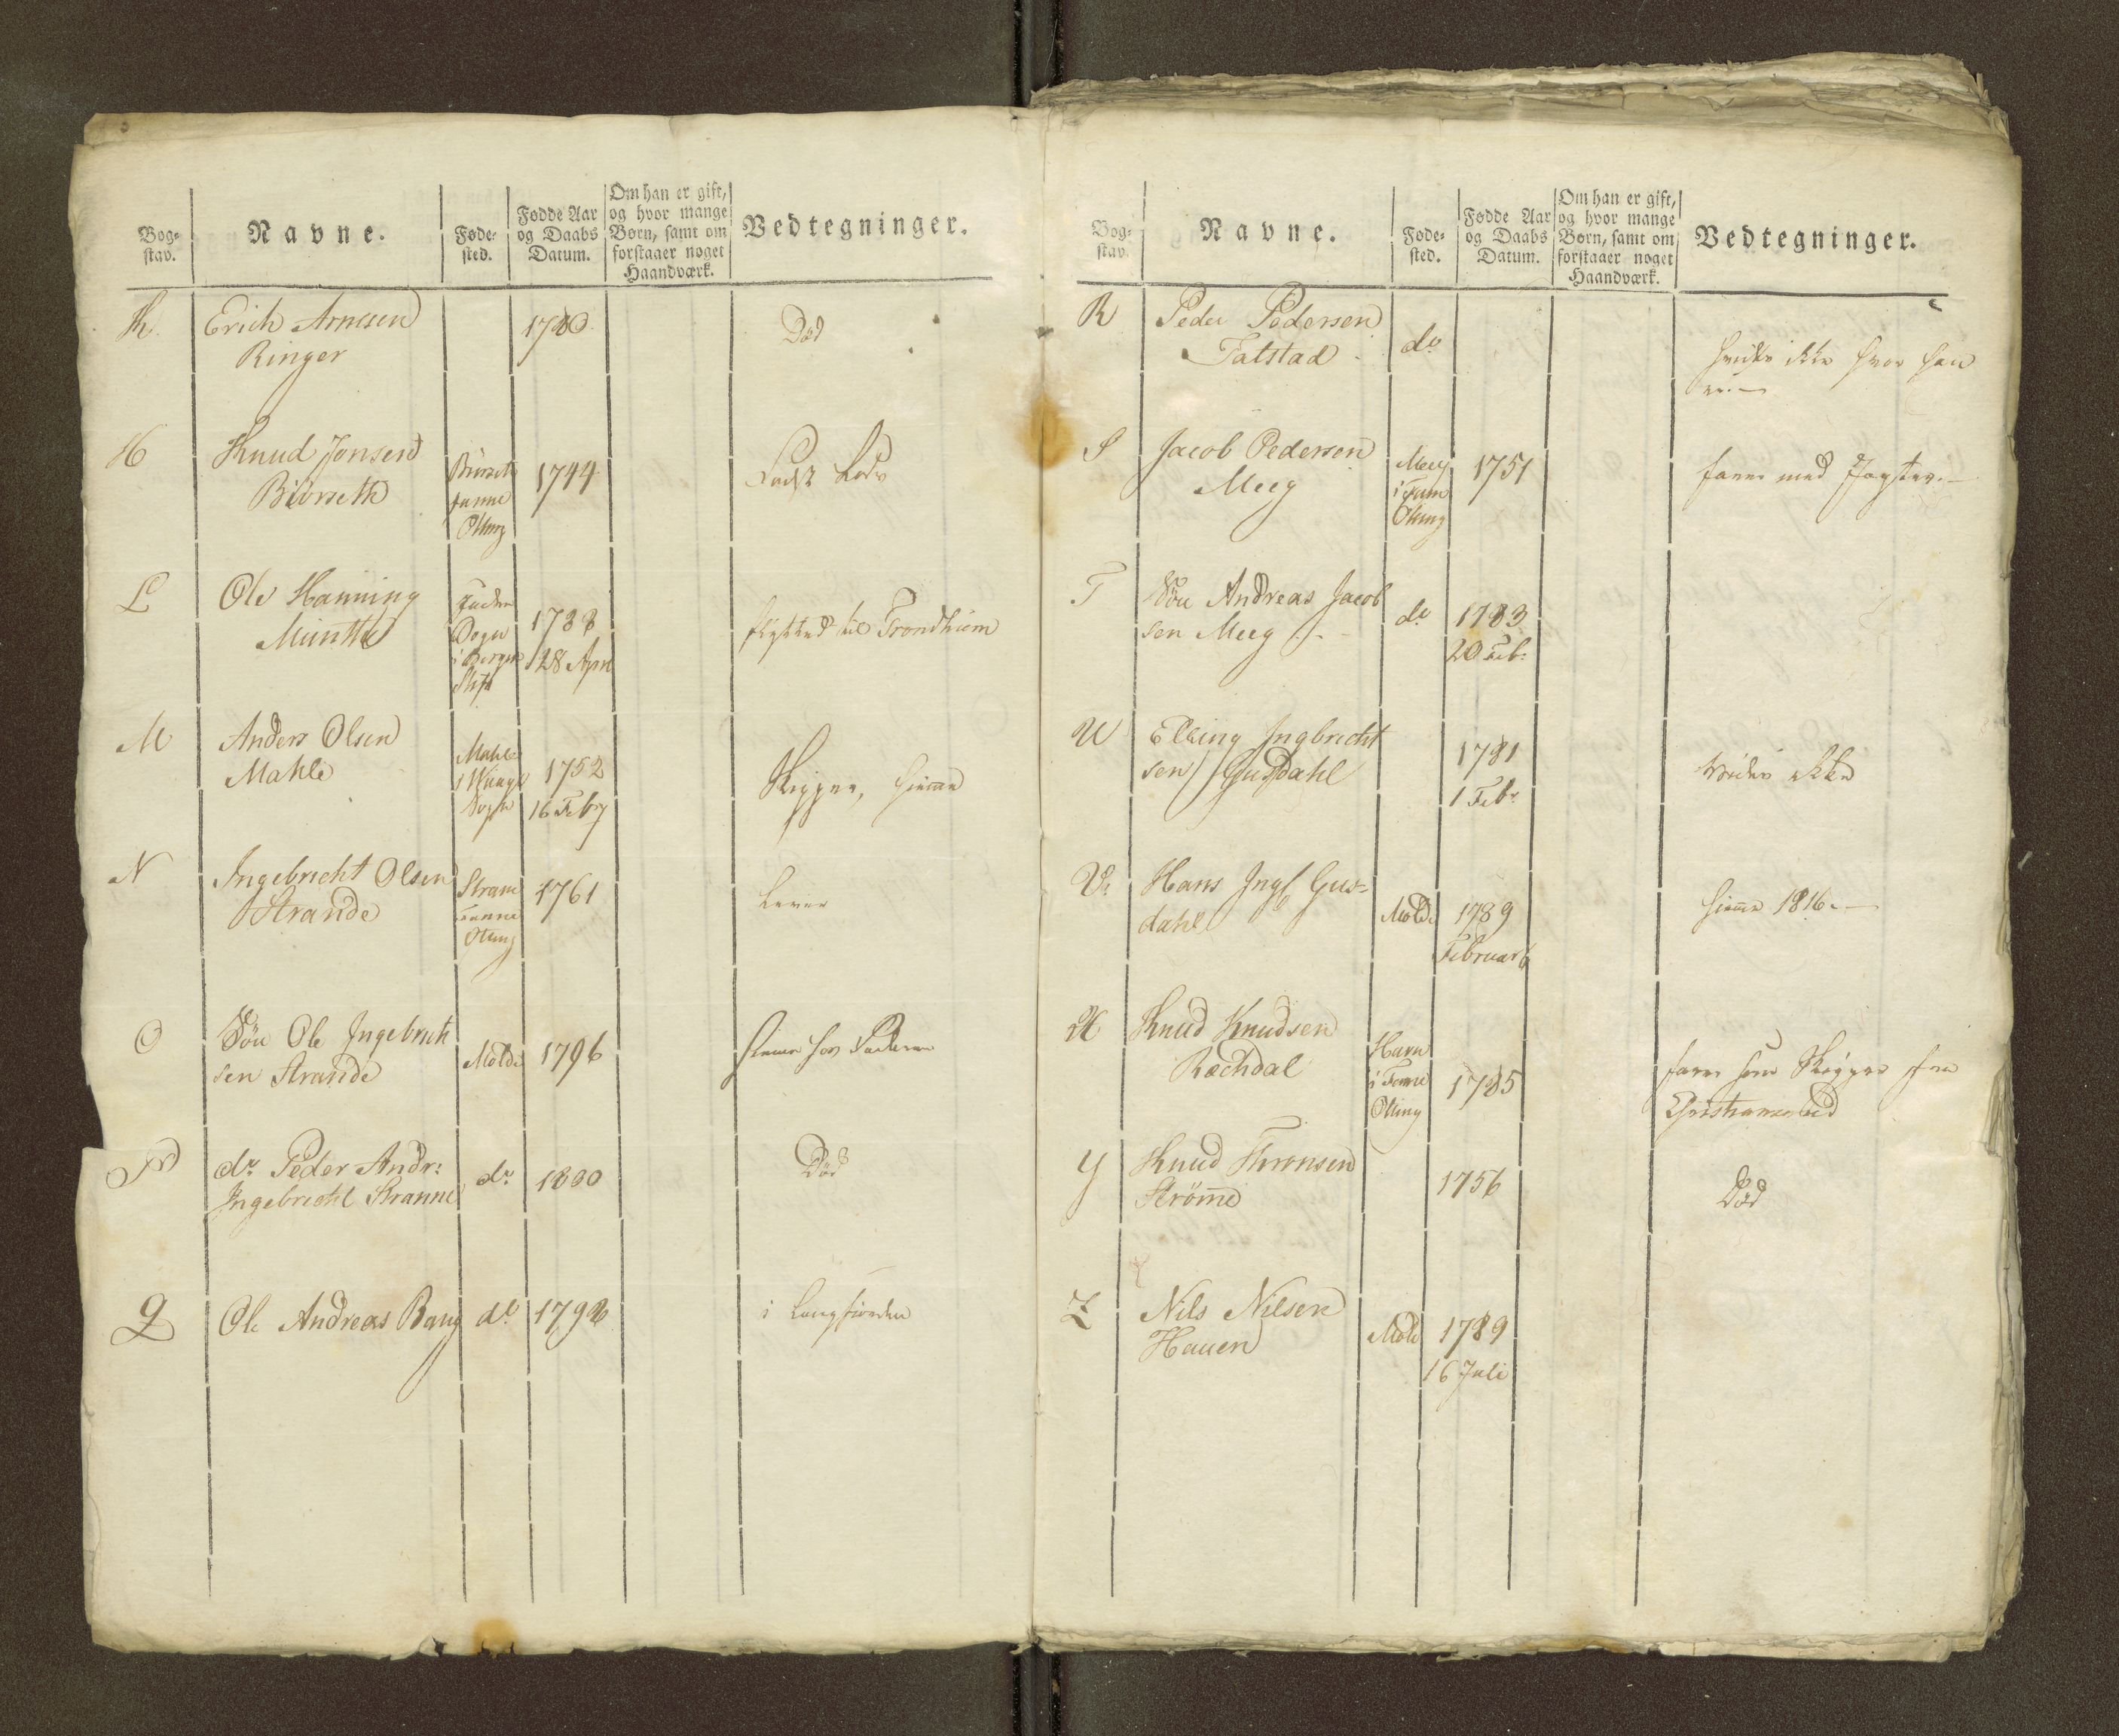 Bog-
stav.
Navne.
Føde-
sted.
Fødde Aar
og Daabs
Datum.
Om han er gift,
og hvor mange
Børn, samt om
forstaaer noget
Haandværk.
Vedtegninger.
Erich Arnesen
Ringer
1780
Død
Knud Jonsen
Biörseth
1744
L
Ole Hanning
Munthe
Sogn
i Bergens
Stift
1788
28 Apri
flytted til Trondhiem
M
Anders Olsen
Mahle
Mahle
Sogn
1752
16 Febry
Skipper, hiemme
N
Ingebricht Olsen
Strande
1761
Lever
O
Sön Ole Ingebricht
sen Strande
Molde
1796
hiemme hos Faderen
P
do Peder Andr:
Ingebricht Stranne
do
1800
Død
Q
Ole Andreas Bang
do
1798
i Langfiorden
Bog-
stav.
Navne.
Føde-
sted.
Fødde Aar
og Daabs
Datum.
Om han er gift,
og hvor mange
Børn, samt om
forstaaer noget
Haandværk.
Vedtegninger.
R
Peder Pedersen
Talstad
do
ikke hvor han
er.
S
Jacob Pedersen
Meeg
Meeg
1751
farer med Jagter.
T
Sön Andreas Jacob
sen Meeg
do
1783
20 Feb:
U
Elling Ingbricht
sen Gusdahl
1781
1 Feb:
vides ikke
V:
Hans Ing Gus-
dahl
Molde
1789
Februar
hieme 1816.
X
Knud Knudsen
Rechdal
1785
farer som Skipper fra
Christiansund
Y
Knud Thronsen
Strömme
1756
Død
Z
Nils Nilsen
Hauen
Molde
1789
16 Juli